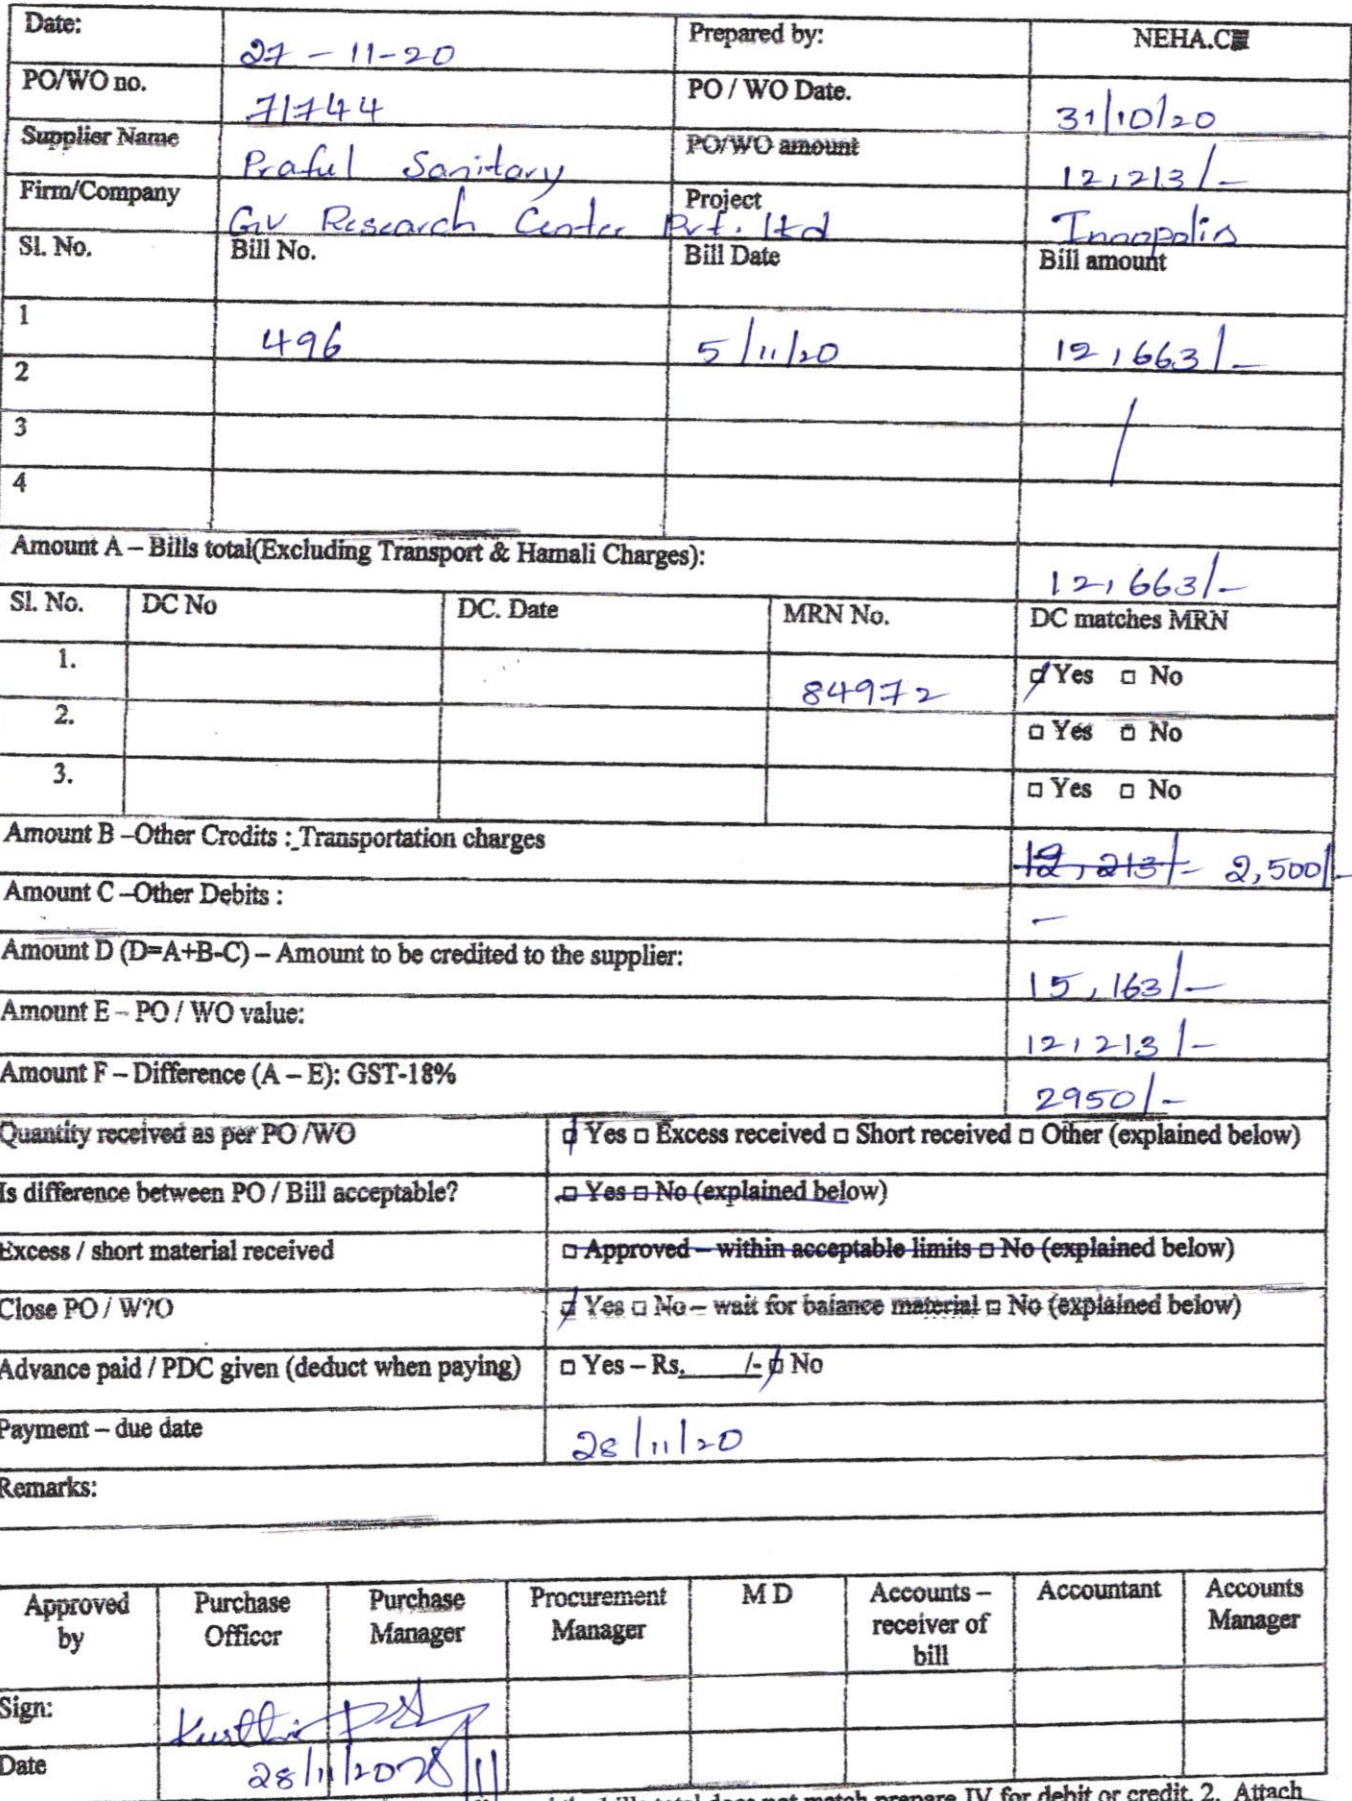 Date: 27-11-20 Prepared by: NEHA.C
PO/WO no. 71744 PO / WO Date. 31/10/20
Supplier Name Praful Sanitary PO/WO amount 12,213/-
Firm/Company GV Research Center Pvt. ltd Project Innopolis
Sl. No. Bill No. Bill Date Bill amount
1 496 5/11/20 12,663/-
2
3
4
Amount A – Bills total(Excluding Transport & Hamali Charges): 12,663/-
Sl. No. DC No DC. Date MRN No. DC matches MRN
1. 84972 Yes □ No
2. □ Yes □ No
3. □ Yes □ No
Amount B –Other Credits : Transportation charges 12,213/- 2,500/-
Amount C –Other Debits : -
Amount D (D=A+B-C) – Amount to be credited to the supplier: 15,163/-
Amount E – PO / WO value: 12,213/-
Amount F – Difference (A – E): GST-18% 2950/-
Quantity received as per PO /WO □ Yes □ Excess received □ Short received □ Other (explained below)
Is difference between PO / Bill acceptable? □ Yes □ No (explained below)
Excess / short material received □ Approved – within acceptable limits □ No (explained below)
Close PO / W?O □ Yes □ No – wait for balance material □ No (explained below)
Advance paid / PDC given (deduct when paying) □ Yes – Rs.____/- □ No
Payment – due date 28/11/20
Remarks:
Approved by Purchase Officer Purchase Manager Procurement Manager M D Accounts – receiver of bill Accountant Accounts Manager
Sign:
Date 28/11/20 28/11
bills total does not match prepare JV for debit or credit. 2. Attach